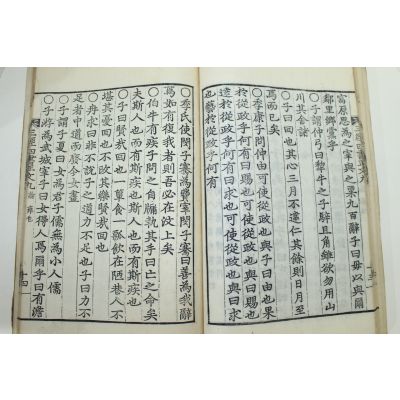 富原思為之宰與之粟九百辭子曰毋以與爾
鄰里鄉黨乎
○子謂仲弓曰犂牛之子騂且角雖欲勿用山
川其舍諸
○子曰回也其心三月不違仁其餘則日月至
焉而已矣
○季康子問仲由可使從政也與子曰由也果
於從政乎何有曰賜也可使從政也與曰賜也
達於從政乎何有曰求也可使從政也與曰求
也藝於從政乎何有
○季氏使閔子騫為費宰閔子騫曰善為我辭
焉如有復我者則吾必在汶上矣
○伯牛有疾子問之自牖執其手曰亡之命矣
夫斯人也而有斯疾也斯人也而有斯疾也
○子曰賢哉回也一簞食一瓢飲在陋巷人不
堪其憂回也不改其樂賢哉回也
○冉求曰非不說子之道力不足也子曰力不
足者中道而廢今女畫
○子謂子夏曰女為君子儒無為小人儒
○子游為武城宰子曰女得人焉爾乎曰有澹